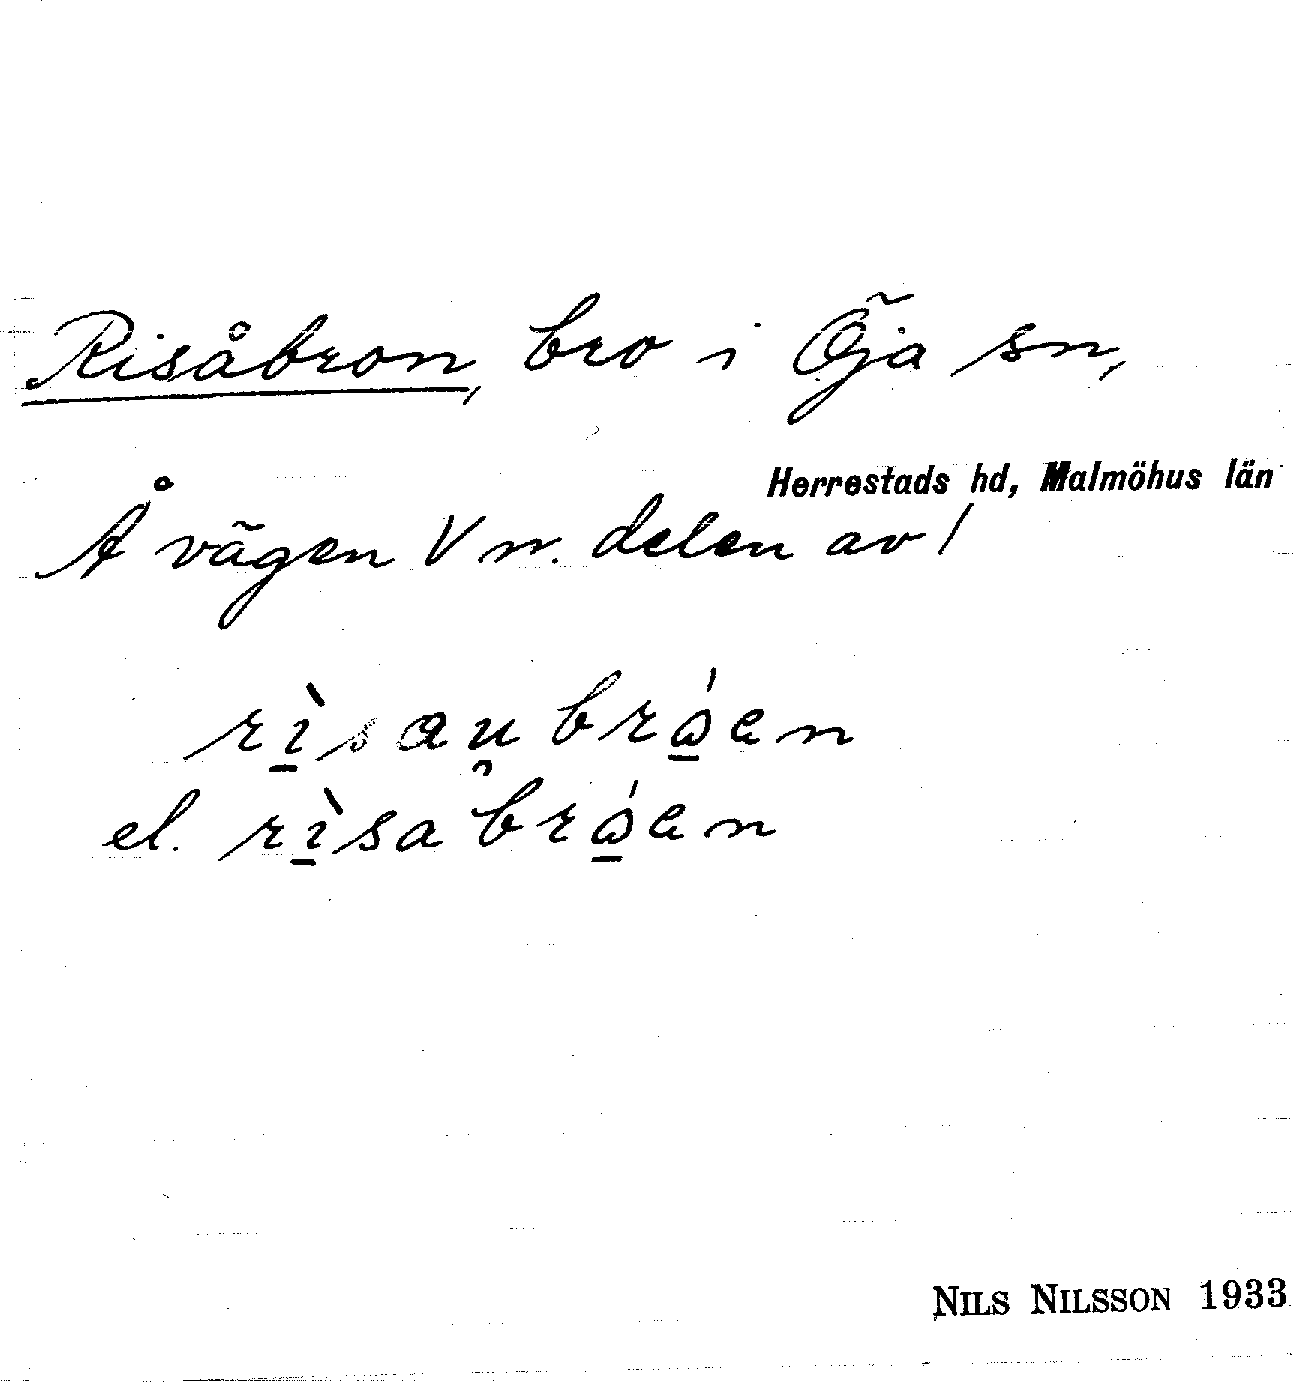 Risåbron, bro i Öja sn,
Herrestads hd, Malmöhus län
Å vägen V n. delen av /
rı̱̀sau̯brɷ̱́en
el. rı̱̀sabrɷ̱́en
NILS NILSSON 1933